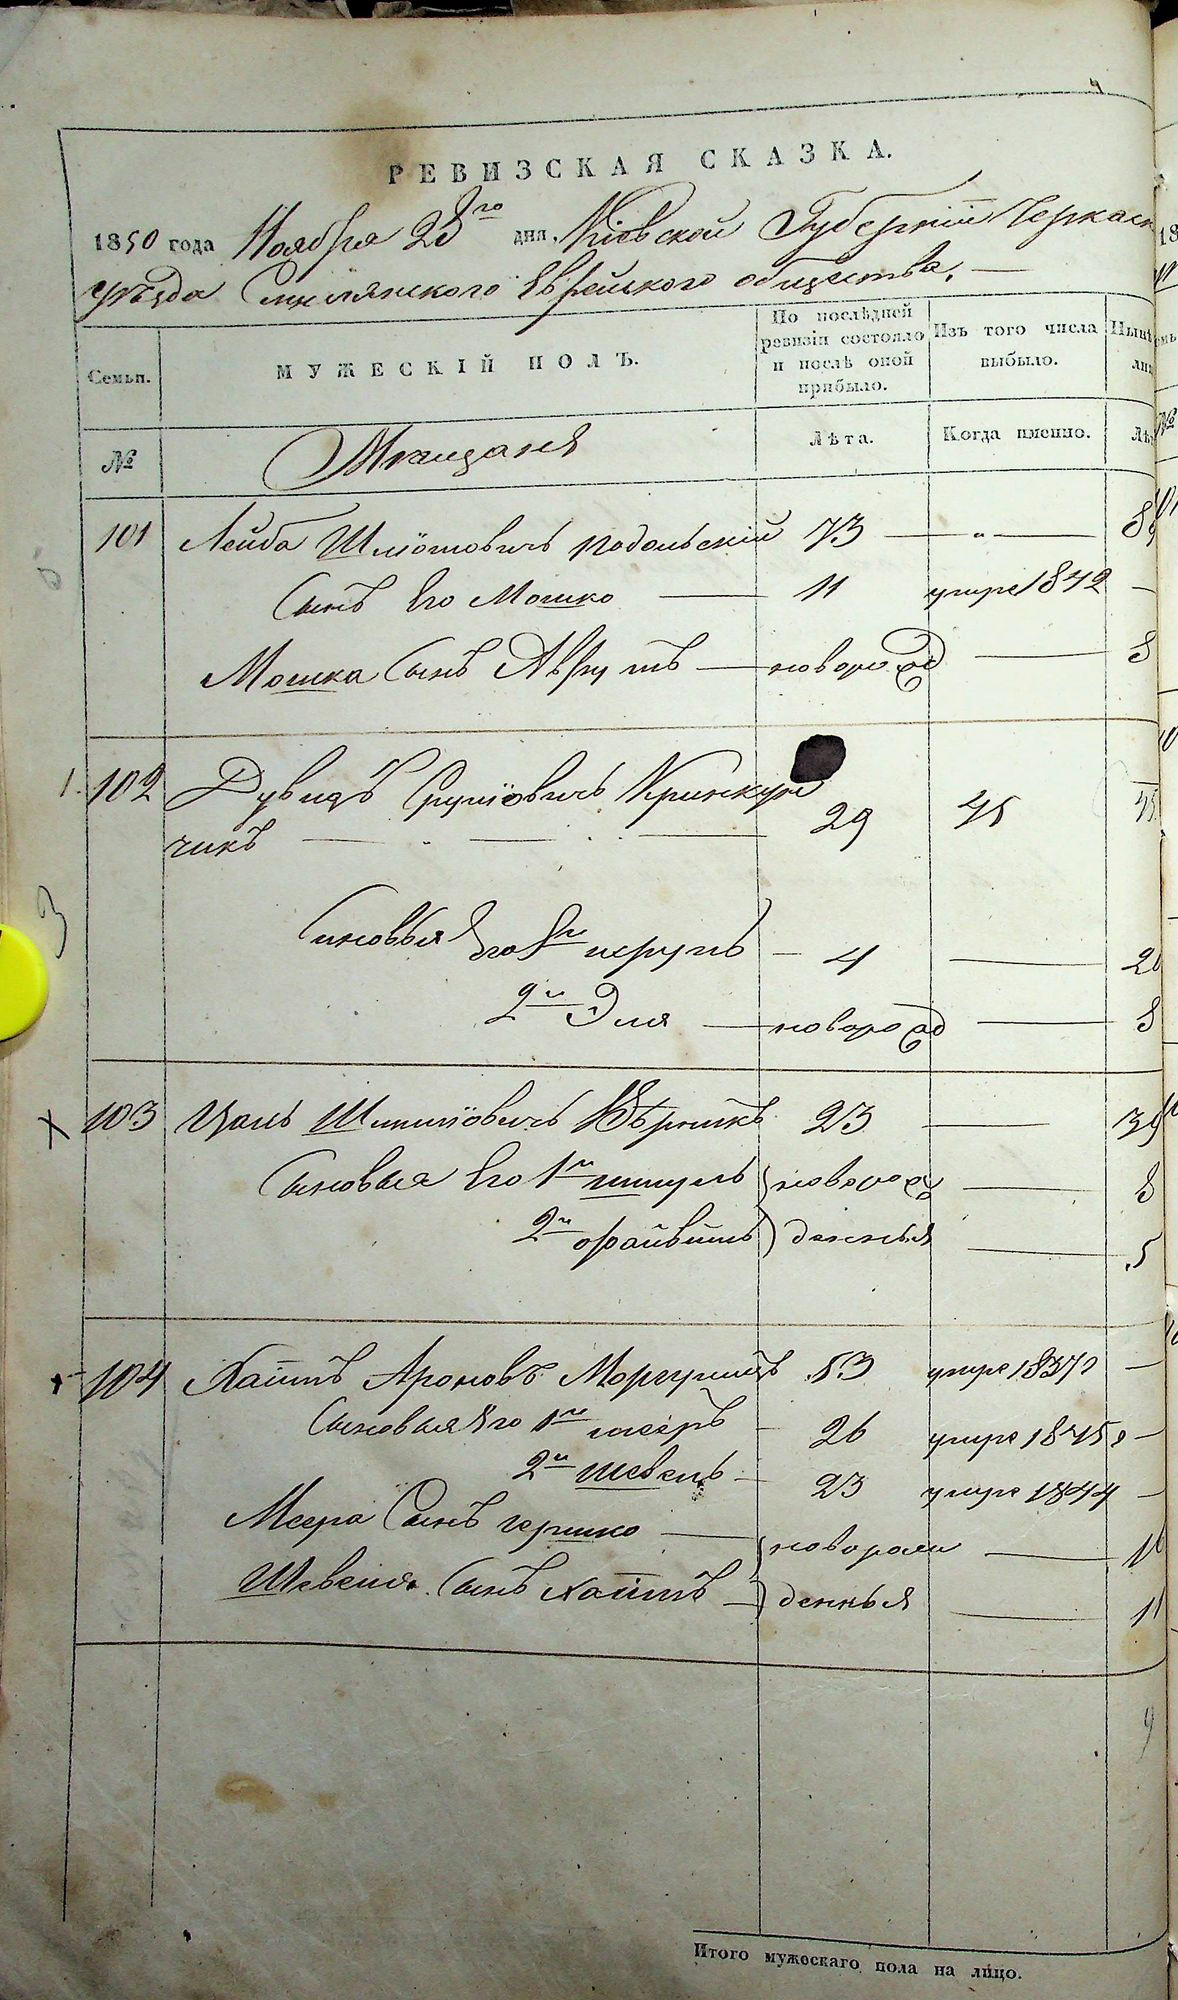 РЕВИЗСКАЯ СКАЗКА.
1850 года Ноября 23го дня, Кіевской Губерніи Черкаск
уѣзда Смилянского Еврейского общества. —
Семьи. МУЖЕСКІЙ ПОЛЪ. По послѣдней ревизіи состояло и послѣ оной прибыло. Изъ того числа выбыло.
№ Мѣщаня Лѣта. Когда именно.
101 Лейба Шліомовичъ Подольскій 73 — " —
Сынъ Его Мошко — 11 умре 1842 —
Мошка Сынъ Аврумъ — новорожд — 8
1. 102 Дувидъ Сруліовичъ
чикъ — 29 45 45
Сыновья Его 1й Шрулъ — 4 — 20
2й Эля — новорожд — 8
103 Шмиліовичъ 23 —
Сыновья Его 1й Шмуль новорож — 8
2й Файвишъ денныя — 5
104 Хаимъ Ароновъ 53 умре 1837 —
Сыновья Его 1й Мееръ — 26 умре 1845 —
2й Шевель — 23 умре 1844 —
Меера Сынъ Гершко — новорож — 16
Шевеля Сынъ Хаимъ — денныя — 11
Итого мужескаго пола на лицо.